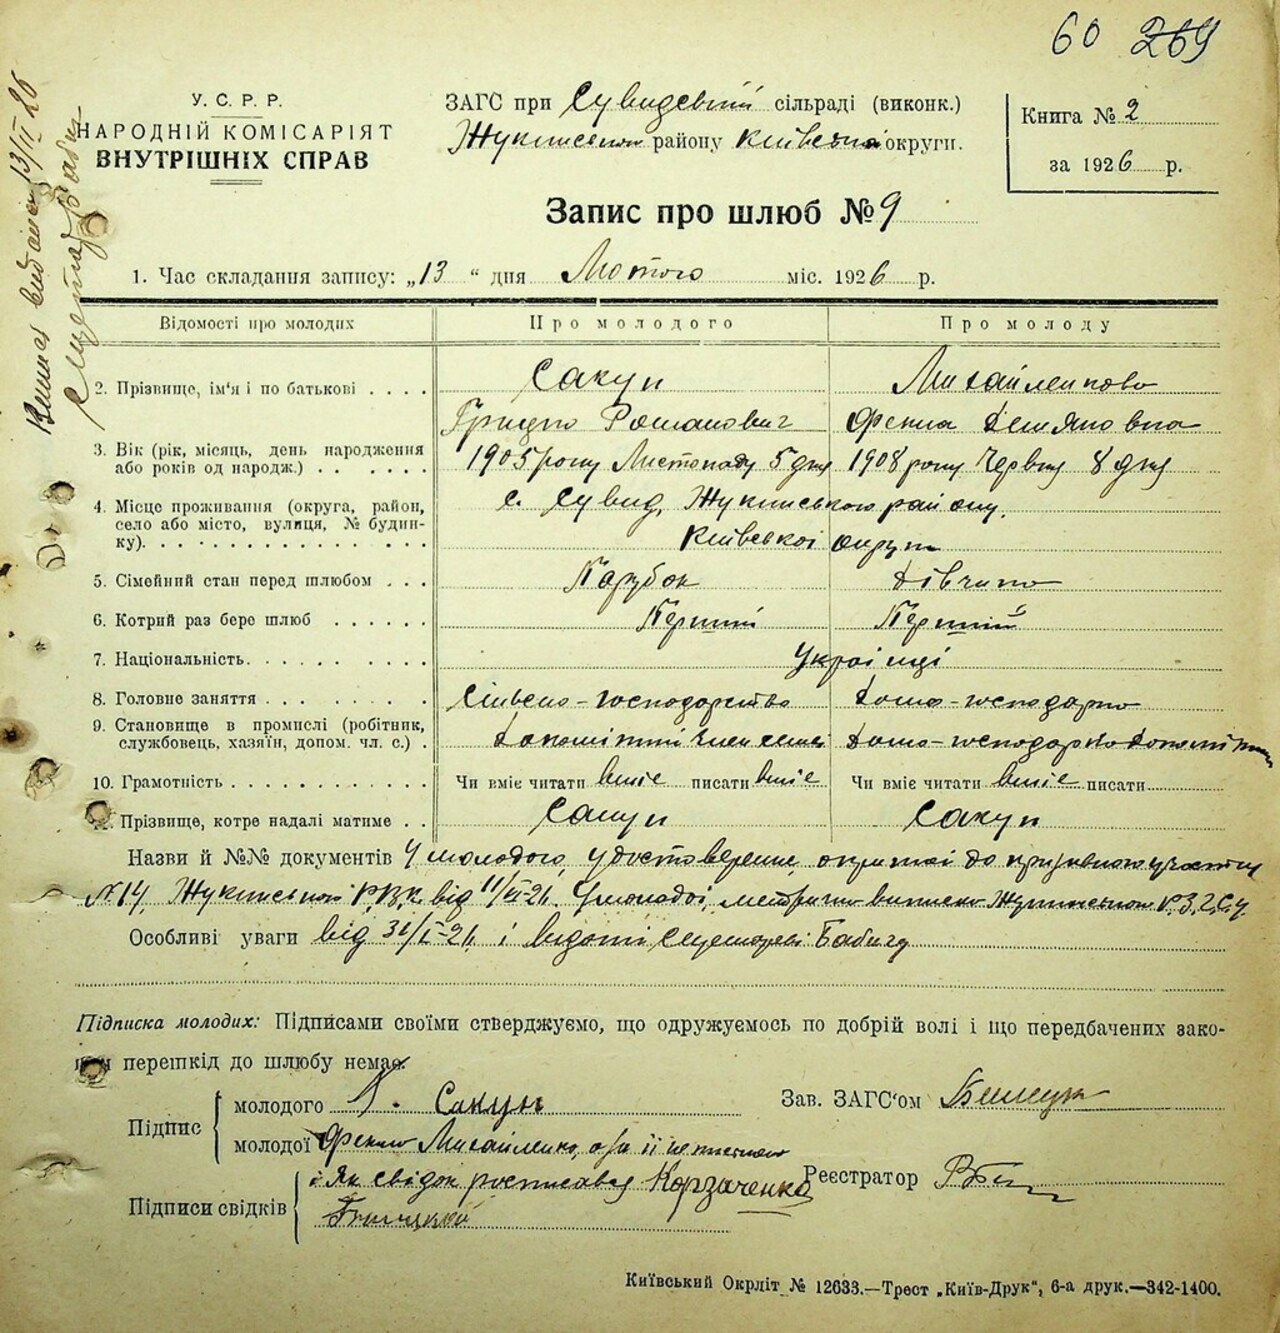 60 269
У. С. Р. Р.
НАРОДНІЙ КОМІСАРІЯТ
ВНУТРІШНІХ СПРАВ
ЗАГС при Сувидській сільраді (виконк.)
Жукинського району Київської округи.
Книга № 2
за 1926 р.
Запис про шлюб № 9
1. Час складання запису: „13“ дня Лютого міс. 1926 р.
Відомості про молодих Про молодого Про молоду
2. Прізвище, ім'я і по батькові . . . . Сакун Михайленкова
Грицко Романович Фекла Демяновна
3. Вік (рік, місяць, день народження 1905 року Листопаду 5 дня 1908 року Червня 8 дня
або років од народж.) . . . . . .
4. Місце проживання (округа, район, с. Сувид, Жукинського району.
село або місто, вулиця, № будин-
ку). Київської округи
5. Сімейний стан перед шлюбом . . . Парубок Дівчина
6. Котрий раз бере шлюб . . . . . . Перший Перший
7. Національність. Українці
8. Головне заняття Сільсько-господарство Домо-господарка
9. Становище в промислі (робітник,
службовець, хазяїн, допом. чл. с.) . Допоміжний член семї Домо-господарка
10. Грамотність Чи вміє читати вміє писати вміє Чи вміє читати вміє писати
Прізвище, котре надалі матиме . . Сакун Сакун
Назви й №№ документів У молодого, удостоверение до призивного участку
№ 14, Жукинського Р.В.К. від У молодої, метрична виписка Жукинського Р.З.А.Г.С.у
Особливі уваги від і видані Бабичу
Підписка молодих: Підписами своїми стверджуємо, що одружуємось по добрій волі і що передбачених зако-
ном перешкід до шлюбу немає.
Підпис
молодого Г. Сакун
Зав. ЗАГС'ом
молодої Фекла Михайленко, а за її неписьмен.
Підписи свідків
і як свідок росписався Корзаченко
Реєстратор
Київський Окрліт № 12633.—Трест „Київ-Друк“, 6-а друк.—342-1400.